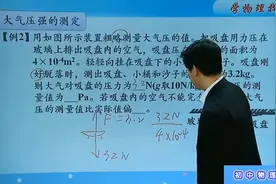 学物理技
大气压强的测定
【例2】用如图所示装置粗略测量大气压的值。把吸盘用力压在
玻璃上排出吸盘内的空气,吸盘压在
的面积为
4×10⁻⁴m²。轻轻向挂在吸盘下的小
子。吸盘刚
刚好脱落时,测出吸盘、小桶和沙子的
为3.2kg。
则大气对吸盘的压力为32N(g取10N/kg
的测
量值为 Pa。若吸盘内的空气不能完
大气
压的测量值比实际值偏
F=32N
32N
4×10⁻⁴
32N
初中物理